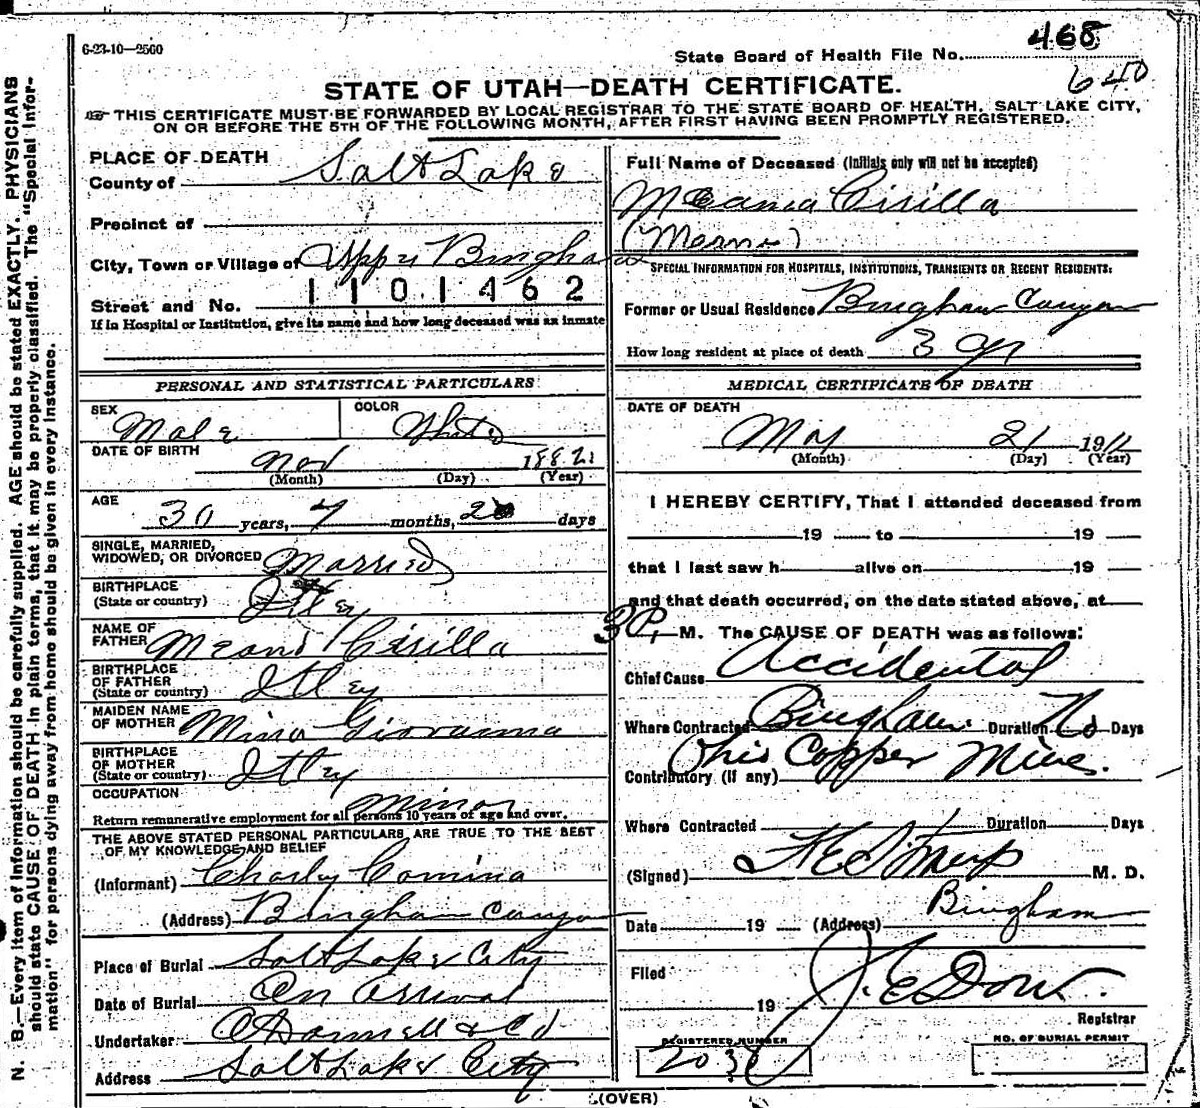 6-23-10—2500
State Board of Health File No. 468
640
STATE OF UTAH—DEATH CERTIFICATE.
THIS CERTIFICATE MUST BE FORWARDED BY LOCAL REGISTRAR TO THE STATE BOARD OF HEALTH, SALT LAKE CITY,
ON OR BEFORE THE 5TH OF THE FOLLOWING MONTH, AFTER FIRST HAVING BEEN PROMPTLY REGISTERED.
PLACE OF DEATH
County of Salt Lake
Precinct of
City, Town or Village of Upper Bingham
Street and No. 1101462
If in Hospital or Institution, give its name and how long deceased was an inmate
PERSONAL AND STATISTICAL PARTICULARS
SEX Male
COLOR White
DATE OF BIRTH Nov 1882
(Month) (Day) (Year)
AGE
30 years, 7 months, days
SINGLE, MARRIED,
WIDOWED, OR DIVORCED Married
BIRTHPLACE
(State or country) Itley
NAME OF
FATHER Cisilla
BIRTHPLACE
OF FATHER
(State or country) Itley
MAIDEN NAME
OF MOTHER Mina Giovanna
BIRTHPLACE
OF MOTHER
(State or country) Itley
OCCUPATION Minor
Return remunerative employment for all persons 10 years of age and over.
THE ABOVE STATED PERSONAL PARTICULARS ARE TRUE TO THE BEST
OF MY KNOWLEDGE AND BELIEF
(Informant) Charly Comina
(Address) Bingham Canyon
Place of Burial Salt Lake City
Date of Burial On Arrival
Undertaker O'Donnell & Co
Address Salt Lake City
Full Name of Deceased (Initials only will not be accepted)
Cisilla
SPECIAL INFORMATION FOR HOSPITALS, INSTITUTIONS, TRANSIENTS OR RECENT RESIDENTS:
Former or Usual Residence Bingham Canyon
How long resident at place of death 3 yr
MEDICAL CERTIFICATE OF DEATH
DATE OF DEATH
May 21 1911
(Month) (Day) (Year)
I HEREBY CERTIFY, That I attended deceased from
19 to 19
that I last saw h alive on 19
and that death occurred, on the date stated above, at
3 P. M. The CAUSE OF DEATH was as follows:
Chief Cause Accidental
Where Contracted Bingham Duration No Days
Ohio Copper Mine.
Contributory (if any)
Where Contracted Duration Days
(Signed) M. D.
Bingham
Date 19 (Address)
Filed
19 J. E. Dow.
Registrar
REGISTERED NUMBER
NO. OF BURIAL PERMIT
(OVER)
N. B.—Every item of information should be carefully supplied. AGE should be stated EXACTLY. PHYSICIANS
should state CAUSE OF DEATH in plain terms, that it may be properly classified. The "Special Infor-
mation" for persons dying away from home should be given in every instance.